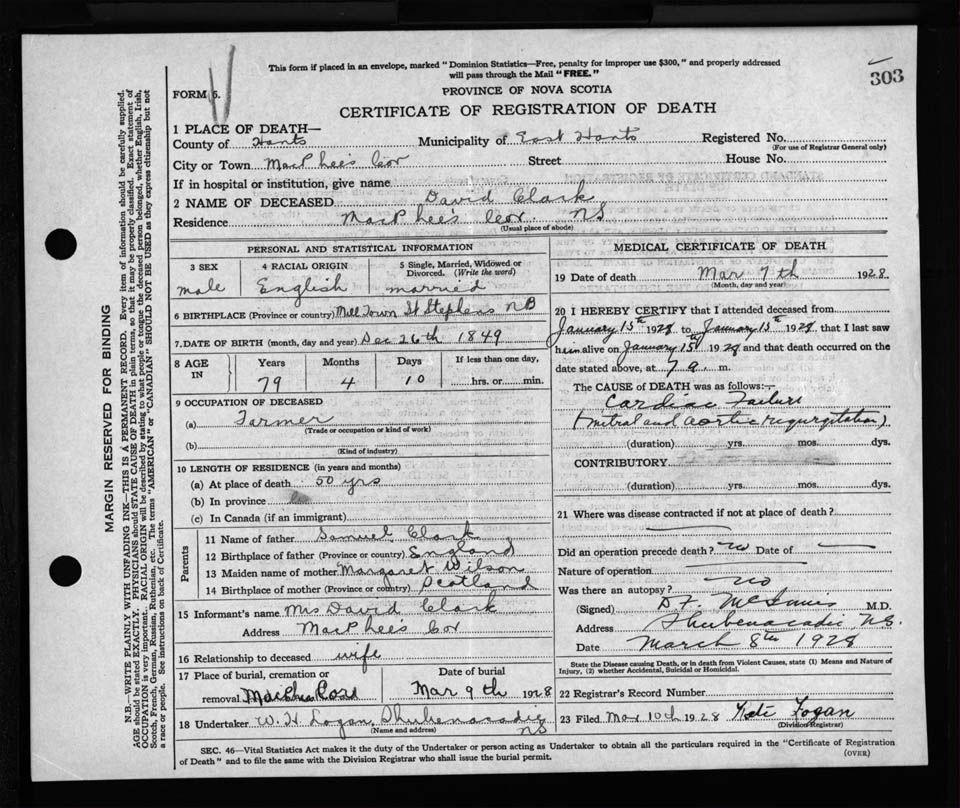 This form if placed in an envelope, marked "Dominion Statistics—Free, penalty for improper use $300," and properly addressed
will pass through the Mail "FREE."
303
FORM 6.
PROVINCE OF NOVA SCOTIA
CERTIFICATE OF REGISTRATION OF DEATH
1 PLACE OF DEATH—
County of Hants Municipality of East Hants Registered No.
(For use of Registrar General only)
City or Town MacPhee's Cor Street House No.
If in hospital or institution, give name
2 NAME OF DECEASED David Clark
Residence MacPhee's Cor. NS
(Usual place of abode)
PERSONAL AND STATISTICAL INFORMATION
3 SEX 4 RACIAL ORIGIN 5 Single, Married, Widowed or
Divorced. (Write the word)
male English married
6 BIRTHPLACE (Province or country) Mill Town St Stephens NB
7. DATE OF BIRTH (month, day and year) Dec 26th 1849
8 AGE IN Years Months Days If less than one day,
79 4 10 hrs. or min.
9 OCCUPATION OF DECEASED
(a) Farmer
(Trade or occupation or kind of work)
(b)
(Kind of industry)
10 LENGTH OF RESIDENCE (in years and months)
(a) At place of death 50 yrs
(b) In province
(c) In Canada (if an immigrant)
Parents
11 Name of father Samuel Clark
12 Birthplace of father (Province or country) England
13 Maiden name of mother Margaret Wilson
14 Birthplace of mother (Province or country) Scotland
15 Informant's name Mrs David Clark
Address MacPhee's Cor
16 Relationship to deceased wife
17 Place of burial, cremation or Date of burial
removal MacPhee Cors Mar 9th 1928
18 Undertaker W. H. Logan, Shubenacadie
(Name and address) NS
MEDICAL CERTIFICATE OF DEATH
19 Date of death Mar 7th 1928.
(Month, day and year)
20 I HEREBY CERTIFY that I attended deceased from
January 15th 1928 to January 15th 1928, that I last saw
him alive on January 15th 1928 and that death occurred on the
date stated above, at 7 a. m.
The CAUSE of DEATH was as follows:—
Cardiac Failure
(mitral and aortic regurgitation)
(duration) yrs. mos. dys.
CONTRIBUTORY
(duration) yrs. mos. dys.
21 Where was disease contracted if not at place of death?
Did an operation precede death? no Date of
Nature of operation
Was there an autopsy? no
(Signed) D F. McInnis M.D.
Address Shubenacadie, N.S.
Date March 8th 1928
State the Disease causing Death, or in death from Violent Causes, state (1) Means and Nature of
Injury, (2) whether Accidental, Suicidal or Homicidal.
22 Registrar's Record Number
23 Filed Mar 10th 1928 Logan
(Division Registrar)
SEC. 46—Vital Statistics Act makes it the duty of the Undertaker or person acting as Undertaker to obtain all the particulars required in the "Certificate of Registration
of Death" and to file the same with the Division Registrar who shall issue the burial permit.
(OVER)
MARGIN RESERVED FOR BINDING
N.B.—WRITE PLAINLY WITH UNFADING INK—THIS IS A PERMANENT RECORD. Every item of information should be carefully supplied.
AGE should be stated EXACTLY. PHYSICIANS should STATE CAUSE OF DEATH in plain terms, so that it may be properly classified. Exact statement of
OCCUPATION is very important. RACIAL ORIGIN will be described by stating to what people or tongue the deceased person belonged, whether English, Irish,
Scotch, French, German, Russian, Ruthenian, etc. The terms "AMERICAN" or "CANADIAN" SHOULD NOT BE USED as they express citizenship but not
a race or people. See instructions on back of Certificate.